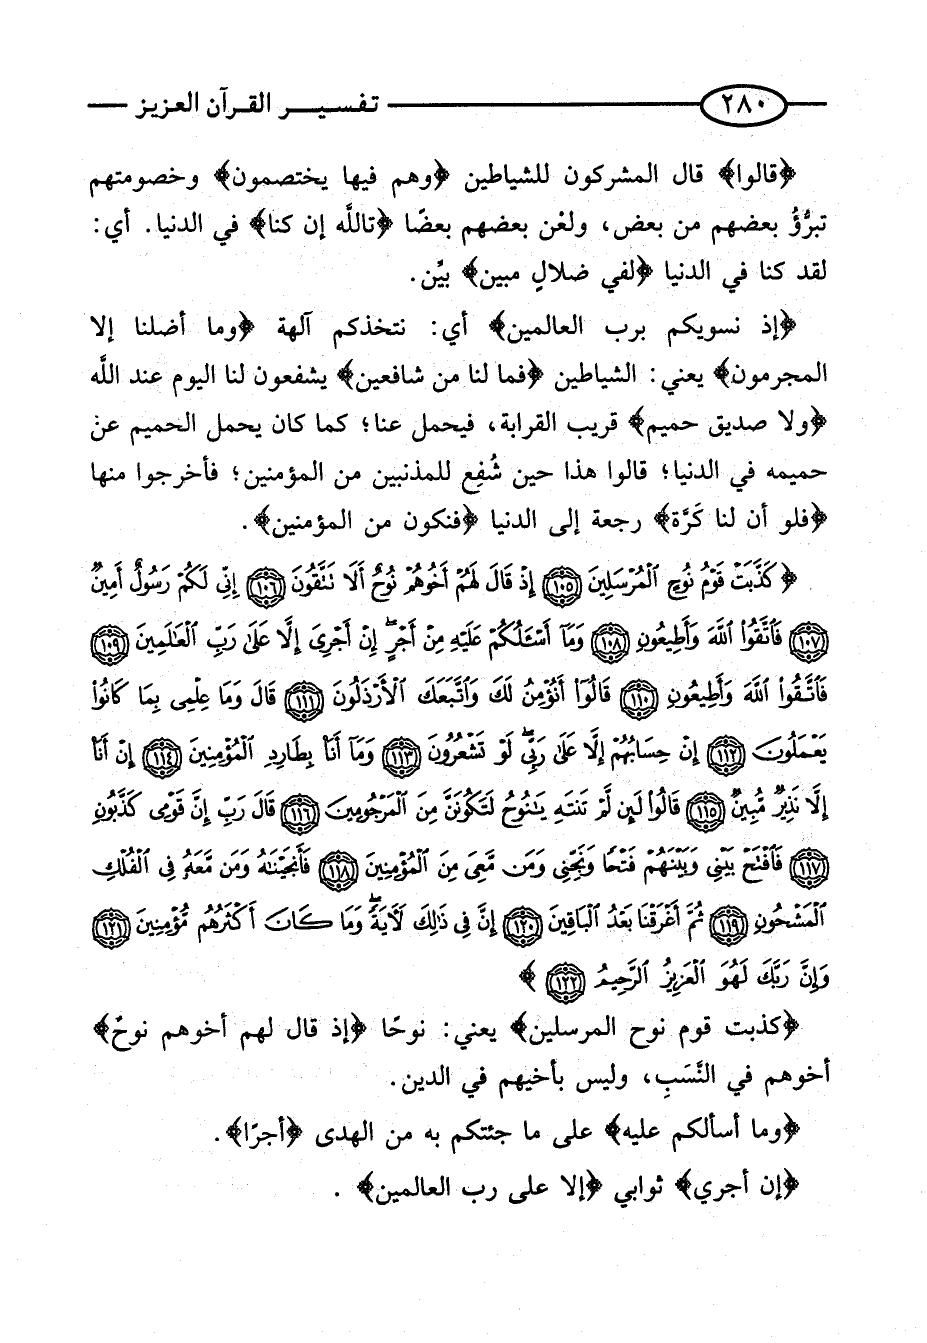 ٢٨٠ تفسير القرآن العزيز
﴿قالوا﴾ قال المشركون للشياطين ﴿وهم فيها يختصمون﴾ وخصومتهم
تبرُّؤُ بعضهم من بعض، ولعْن بعضهم بعضًا ﴿تاللَّه إن كنا﴾ في الدنيا. أي:
لقد كنا في الدنيا ﴿لفي ضلالٍ مبين﴾ بيِّن.
﴿إذ نسويكم برب العالمين﴾ أي: نتخذكم آلهة ﴿وما أضلنا إلا
المجرمون﴾ يعني: الشياطين ﴿فما لنا من شافعين﴾ يشفعون لنا اليوم عند اللَّه
﴿ولا صديق حميم﴾ قريب القرابة، فيحمل عنا؛ كما كان يحمل الحميم عن
حميمه في الدنيا؛ قالوا هذا حين شُفِع للمذنبين من المؤمنين؛ فأخرجوا منها
﴿فلو أن لنا كَرَّة﴾ رجعة إلى الدنيا ﴿فنكون من المؤمنين﴾.
﴿كَذَّبَتْ قَوْمُ نُوحٍ ٱلْمُرْسَلِينَ ١٠٥ إِذْ قَالَ لَهُمْ أَخُوهُمْ نُوحٌ أَلَا نَتَّقُونَ ١٠٦ إِنِّى لَكُمْ رَسُولٌ أَمِينٌ
١٠٧ فَٱتَّقُوا۟ ٱللَّهَ وَأَطِيعُونِ ١٠٨ وَمَآ أَسْـَٔلُكُمْ عَلَيْهِ مِنْ أَجْرٍ ۖ إِنْ أَجْرِىَ إِلَّا عَلَىٰ رَبِّ ٱلْعَٰلَمِينَ ١٠٩
فَٱتَّقُوا۟ ٱللَّهَ وَأَطِيعُونِ ١١٠ قَالُوٓا۟ أَنُؤْمِنُ لَكَ وَٱتَّبَعَكَ ٱلْأَرْذَلُونَ ١١١ قَالَ وَمَا عِلْمِى بِمَا كَانُوا۟
يَعْمَلُونَ ١١٢ إِنْ حِسَابُهُمْ إِلَّا عَلَىٰ رَبِّى ۖ لَوْ تَشْعُرُونَ ١١٣ وَمَآ أَنَا۠ بِطَارِدِ ٱلْمُؤْمِنِينَ ١١٤ إِنْ أَنَا۠
إِلَّا نَذِيرٌ مُّبِينٌ ١١٥ قَالُوا۟ لَئِن لَّمْ تَنتَهِ يَٰنُوحُ لَتَكُونَنَّ مِنَ ٱلْمَرْجُومِينَ ١١٦ قَالَ رَبِّ إِنَّ قَوْمِى كَذَّبُونِ
١١٧ فَٱفْتَحْ بَيْنِى وَبَيْنَهُمْ فَتْحًا وَنَجِّنِى وَمَن مَّعِىَ مِنَ ٱلْمُؤْمِنِينَ ١١٨ فَأَنجَيْنَٰهُ وَمَن مَّعَهُۥ فِى ٱلْفُلْكِ
ٱلْمَشْحُونِ ١١٩ ثُمَّ أَغْرَقْنَا بَعْدُ ٱلْبَاقِينَ ١٢٠ إِنَّ فِى ذَٰلِكَ لَءَايَةً ۖ وَمَا كَانَ أَكْثَرُهُم مُّؤْمِنِينَ ١٢١
وَإِنَّ رَبَّكَ لَهُوَ ٱلْعَزِيزُ ٱلرَّحِيمُ ١٢٢﴾
﴿كذبت قوم نوح المرسلين﴾ يعني: نوحًا ﴿إذ قال لهم أخوهم نوحٌ﴾
أخوهم في النَّسَبِ، وليس بأخيهم في الدين.
﴿وما أسألكم عليه﴾ على ما جئتكم به من الهدى ﴿أجرًا﴾.
﴿إن أجري﴾ ثوابي ﴿إلا على رب العالمين﴾ .